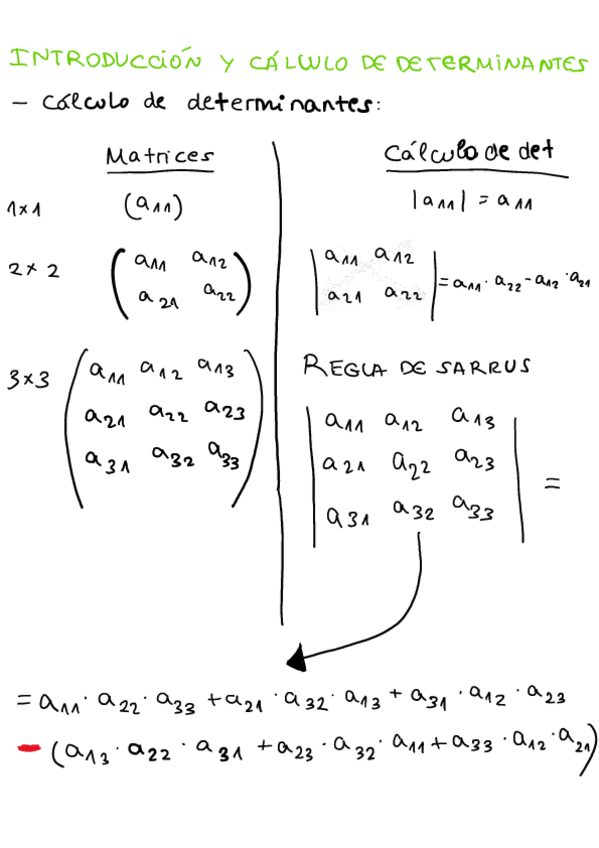 INTRODUCCIÓN Y CÁLCULO DE DETERMINANTES
- cálculo de determinantes:
Matrices
Cálculo de det
1x1 (a11) |a11| = a11
2x2
a11 a12
a21 a22
a11 a12
a21 a22
= a11 · a22 - a12 · a21
3x3
a11 a12 a13
a21 a22 a23
a31 a32 a33
REGLA DE SARRUS
a11 a12 a13
a21 a22 a23
a31 a32 a33
=
= a11 · a22 · a33 + a21 · a32 · a13 + a31 · a12 · a23
- (a13 · a22 · a31 + a23 · a32 · a11 + a33 · a12 · a21)